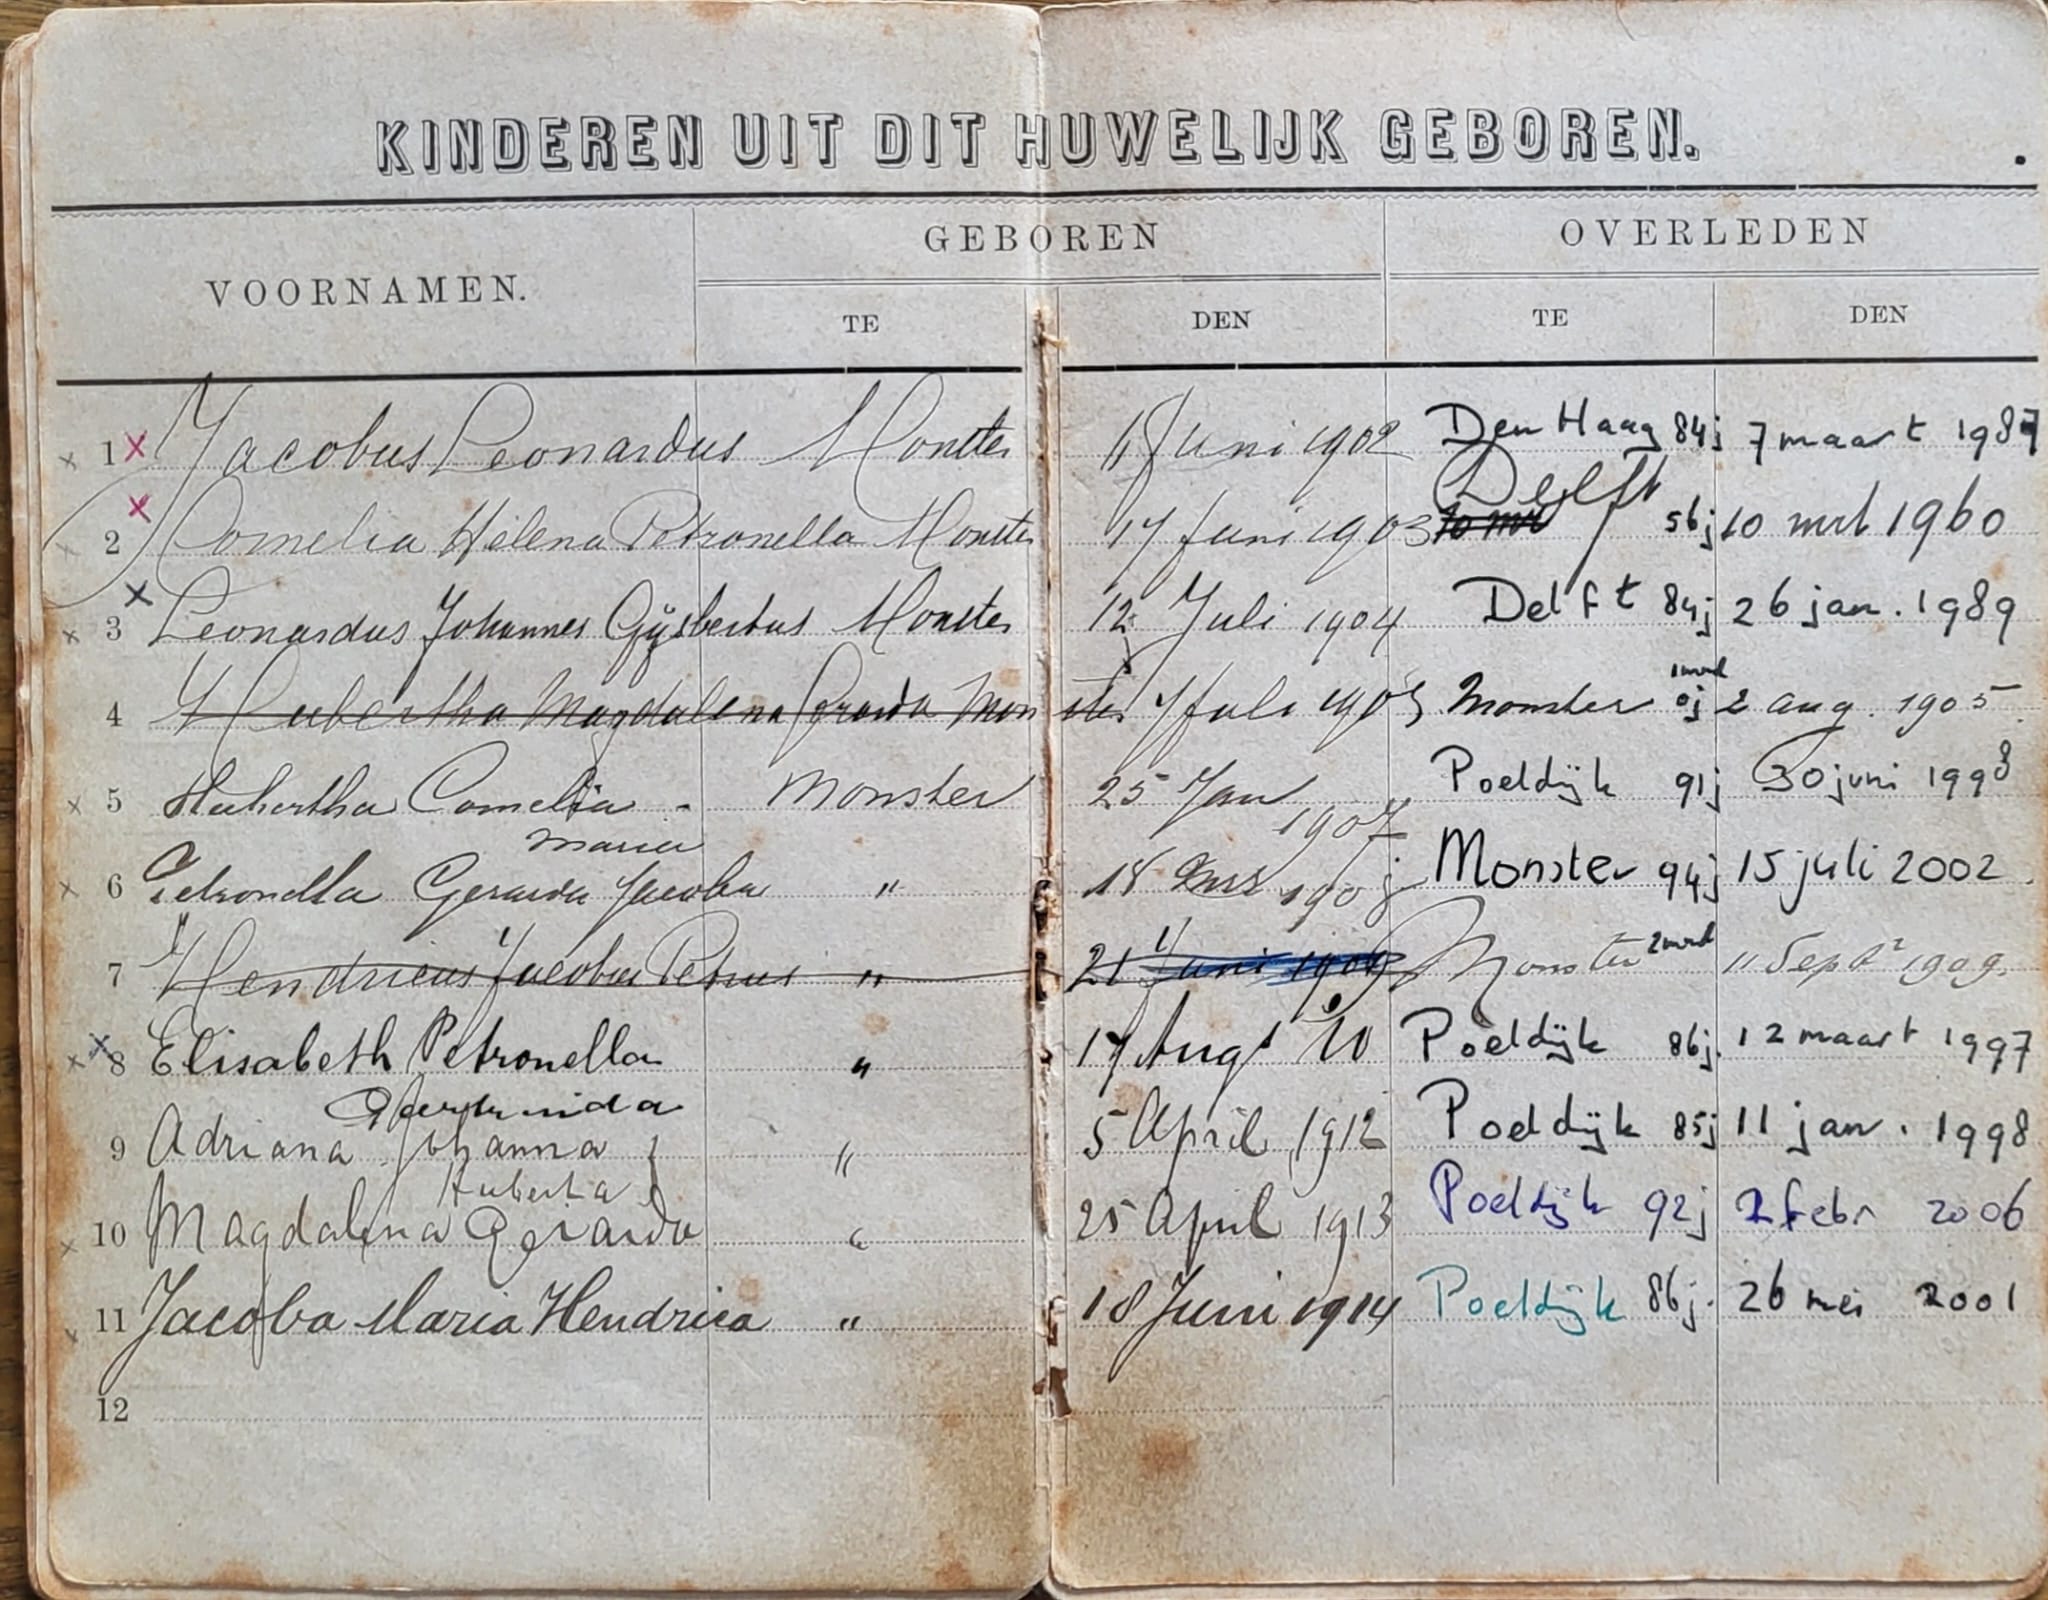 KINDEREN UIT DIT HUWELIJK GEBOREN.
VOORNAMEN. GEBOREN OVERLEDEN
TE DEN TE DEN
1 Jacobus Leonardus Monster Juni 1902 Den Haag 84j 7 maart 1987
2 Cornelia Helena Petronella Monster 17 Juni 1903 Delft 56j 10 mrt 1960
3 Leonardus Johannes Gijsbertus Monster 12 Juli 1904 Delft 84j 26 jan. 1989
4 Hubertha Magdalena Gerarda Monster 7 Juli 1905 Monster 0j 1 mnd 2 aug. 1905
5 Hubertha Cornelia - Monster 25 Jan 1907 Poeldijk 91j 30 juni 1998
Maria
6 Petronella Gerarda Jacoba " 18 1908 Monster 94j 15 juli 2002
7 Hendricus Jacobus Petrus " 21 Juni 1909 Monster 2 mnd 11 Sept 1909.
8 Elisabeth Petronella " 17 Aug 10 Poeldijk 86j. 12 maart 1997
Geertruida
9 Adriana Johanna " 5 April 1912 Poeldijk 85j 11 jan. 1998
Huberta
10 Magdalena Gerarda " 25 April 1913 Poeldijk 92j 2 febr 2006
11 Jacoba Maria Hendrica " 18 Juni 1914 Poeldijk 86j. 26 mei 2001
12